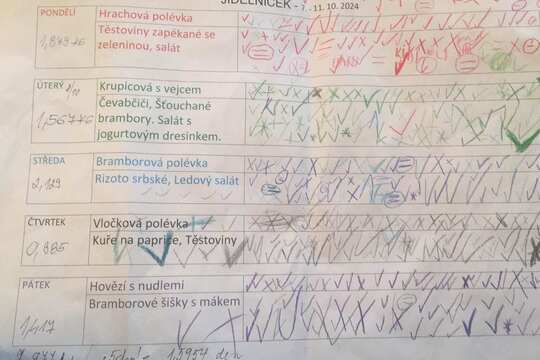 JÍDELNÍČEK - 7. - 11. 10. 2024
PONDĚLÍ
Hrachová polévka
Těstoviny zapékané se
zeleninou, salát
ÚTERÝ 8/10
Krupicová s vejcem
Čevabčiči, Šťouchané
brambory. Salát s
jogurtovým dresinkem.
STŘEDA
Bramborová polévka
2,129
Rizoto srbské, Ledový salát
ČTVRTEK
Vločková polévka
0,885
Kuře na paprice, Těstoviny
PÁTEK
Hovězí s nudlemi
Bramborové šišky s mákem
1,417